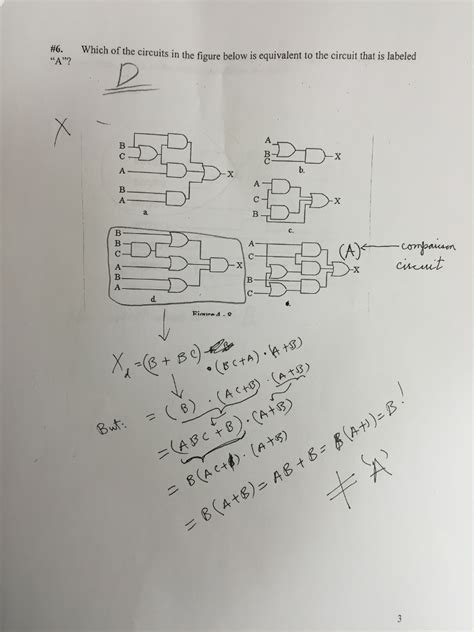 #6. Which of the circuits in the figure below is equivalent to the circuit that is labeled
"A"?
D
X –
B
C
A
B
A
X
a.
A
B
C
X
b.
A
C
B
X
c.
B
B
C
A
B
A
X
d.
A
C
B
C
X
(A) ← comparison
circuit
Figure 4 - 9
X_d = (B + BC)
· (BC+A) · (A+B)
But: = (B) · (AC+B) · (A+B)
= (ABC + B) · (A+B)
= B(AC+1) · (A+B)
= B(A+B) = AB + B = B(A+1) = B !
≠ 'A'
3